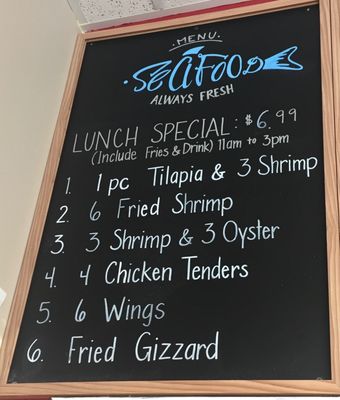 MENU
SEAFOOD
ALWAYS FRESH
LUNCH SPECIAL: $6.99
(Include Fries & Drink) 11am to 3pm
1. 1 pc Tilapia & 3 Shrimp
2. 6 Fried Shrimp
3. 3 Shrimp & 3 Oyster
4. 4 Chicken Tenders
5. 6 Wings
6. Fried Gizzard